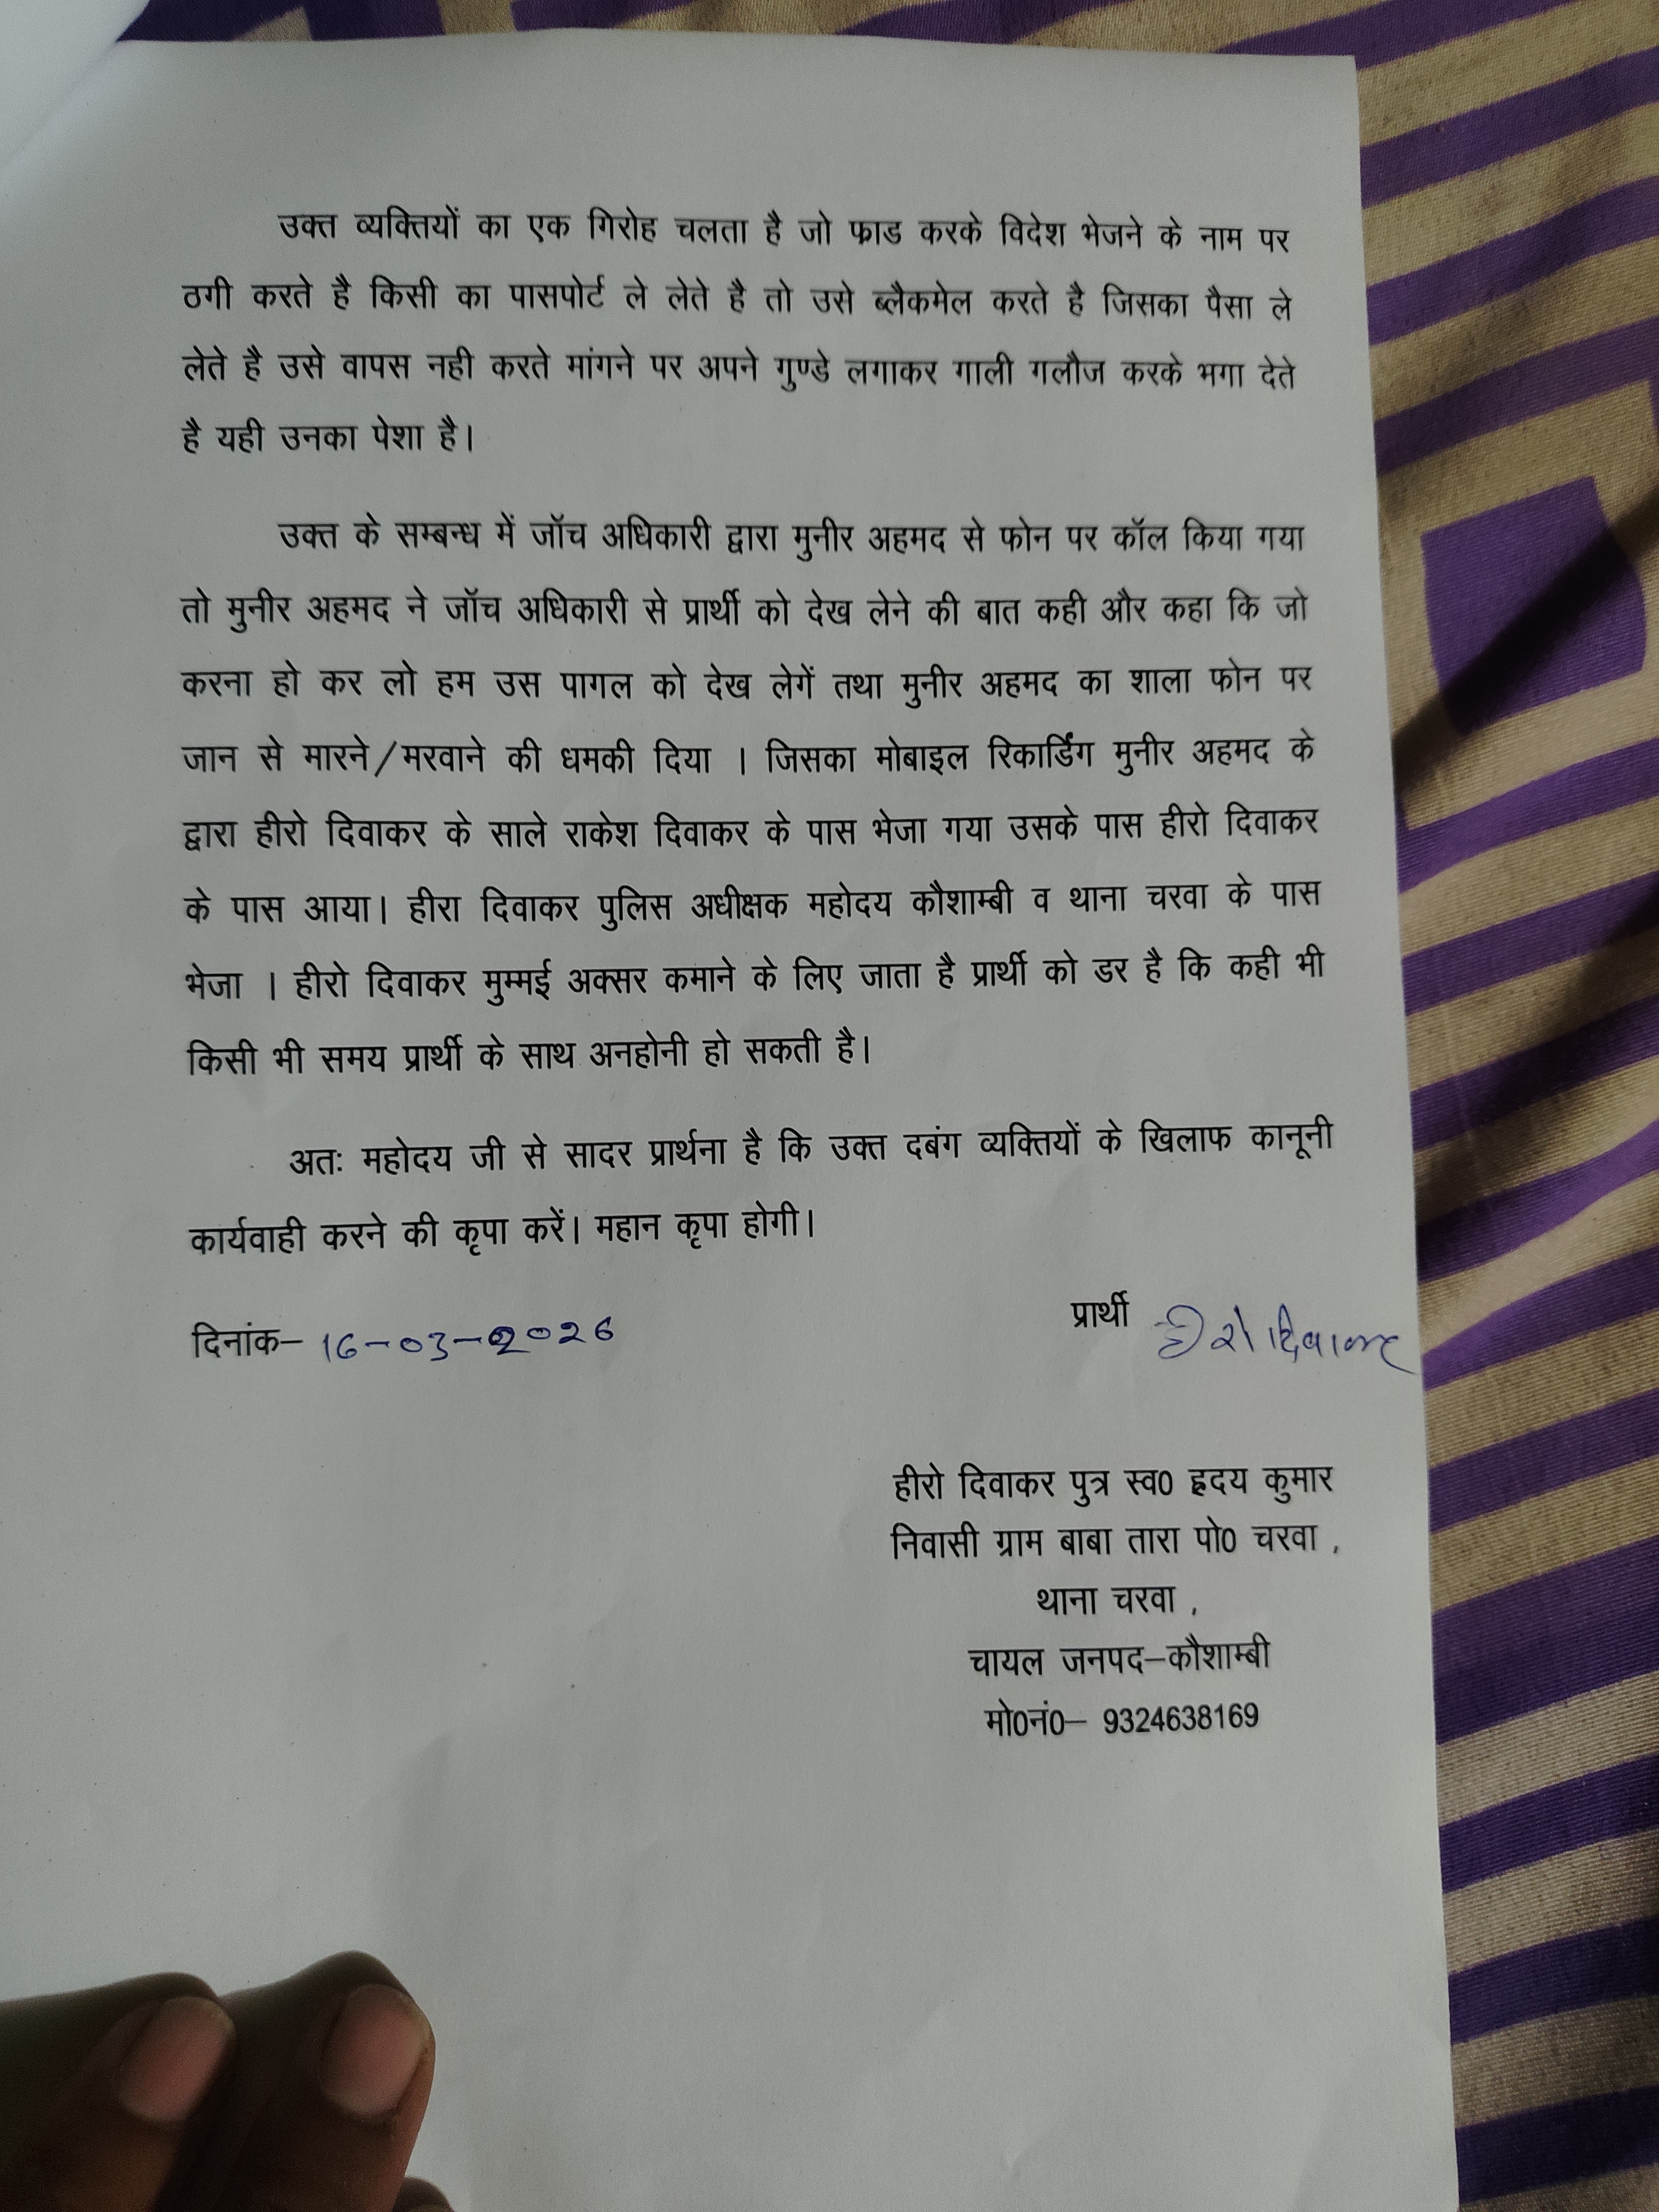 उक्त व्यक्तियों का एक गिरोह चलता है जो फ्राड करके विदेश भेजने के नाम पर
ठगी करते है किसी का पासपोर्ट ले लेते है तो उसे ब्लैकमेल करते है जिसका पैसा ले
लेते है उसे वापस नही करते मांगने पर अपने गुण्डे लगाकर गाली गलौज करके भगा देते
है यही उनका पेशा है।
उक्त के सम्बन्ध में जॉच अधिकारी द्वारा मुनीर अहमद से फोन पर कॉल किया गया
तो मुनीर अहमद ने जॉच अधिकारी से प्रार्थी को देख लेने की बात कही और कहा कि जो
करना हो कर लो हम उस पागल को देख लेगें तथा मुनीर अहमद का शाला फोन पर
जान से मारने/मरवाने की धमकी दिया । जिसका मोबाइल रिकार्डिंग मुनीर अहमद के
द्वारा हीरो दिवाकर के साले राकेश दिवाकर के पास भेजा गया उसके पास हीरो दिवाकर
के पास आया। हीरा दिवाकर पुलिस अधीक्षक महोदय कौशाम्बी व थाना चरवा के पास
भेजा । हीरो दिवाकर मुम्मई अक्सर कमाने के लिए जाता है प्रार्थी को डर है कि कही भी
किसी भी समय प्रार्थी के साथ अनहोनी हो सकती है।
अतः महोदय जी से सादर प्रार्थना है कि उक्त दबंग व्यक्तियों के खिलाफ कानूनी
कार्यवाही करने की कृपा करें। महान कृपा होगी।
दिनांक– 16-03-2026 प्रार्थी हीरो दिवाकर
हीरो दिवाकर पुत्र स्व0 ह्रदय कुमार
निवासी ग्राम बाबा तारा पो0 चरवा ,
थाना चरवा ,
चायल जनपद–कौशाम्बी
मो0नं0– 9324638169